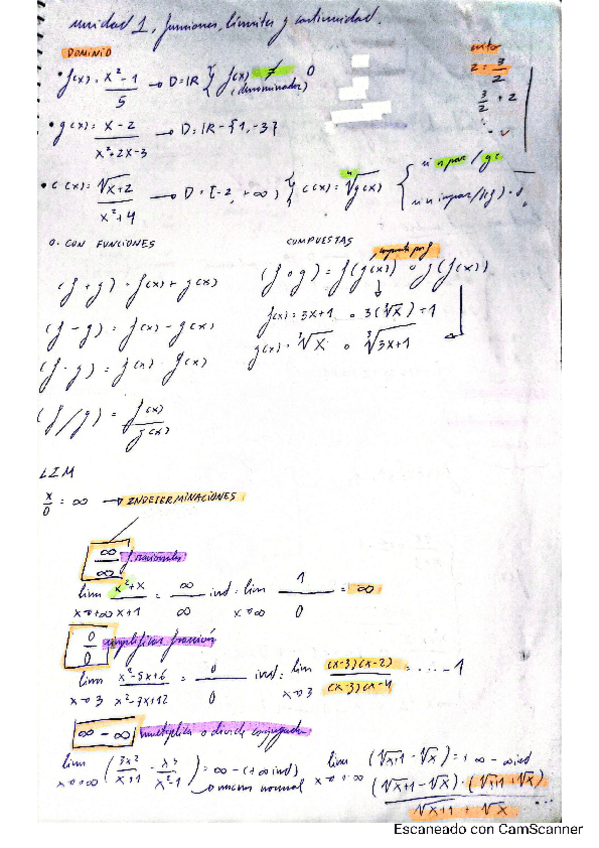 unidad 1, funciones, límites y continuidad.
DOMINIO
• f(x) = x²-1 / 5 → D=ℝ { f(x) ≠ 0 (denominador)
z = 3/2
3/2 + 2
• g(x) = x-2 / x²+2x-3 → D: ℝ - {1, -3}
• c(x) = √x+2 / x²+4 → D: [-2, +∞) { c(x) = ⁿ√g(x) { si n par /
si n impar /
O. CON FUNCIONES
COMPUESTAS
(f + g) = f(x) + g(x)
(f - g) = f(x) - g(x)
(f · g) = f(x) · g(x)
(f / g) = f(x) / g(x)
(f o g) = f(g(x)) o g(f(x))
f(x) = 3x+1 o 3(³√x) + 1
g(x) = ³√x o ³√3x+1
LIM
x/0 = ∞ → INDETERMINACIONES
∞/∞ f. racionales
lim x→+∞ x²+x / x+1 = ∞/∞ ind = lim x→∞ 1/0 = ∞
0/0 simplificar fracción
lim x→3 x²-5x+6 / x²-7x+12 = 0/0 ind = lim x→3 (x-3)(x-2) / (x-3)(x-4) = .... -1
∞ - ∞ multiplica o divide conjugado
lim x→+∞ (3x² / x+1 - / x²-1) = ∞ - (+∞ ind)
normal
lim x→+∞ (√x+1 - √x) = +∞ - ind
(√x+1 - √x) · (√x+1 + √x) / √x+1 + √x ...
Escaneado con CamScanner